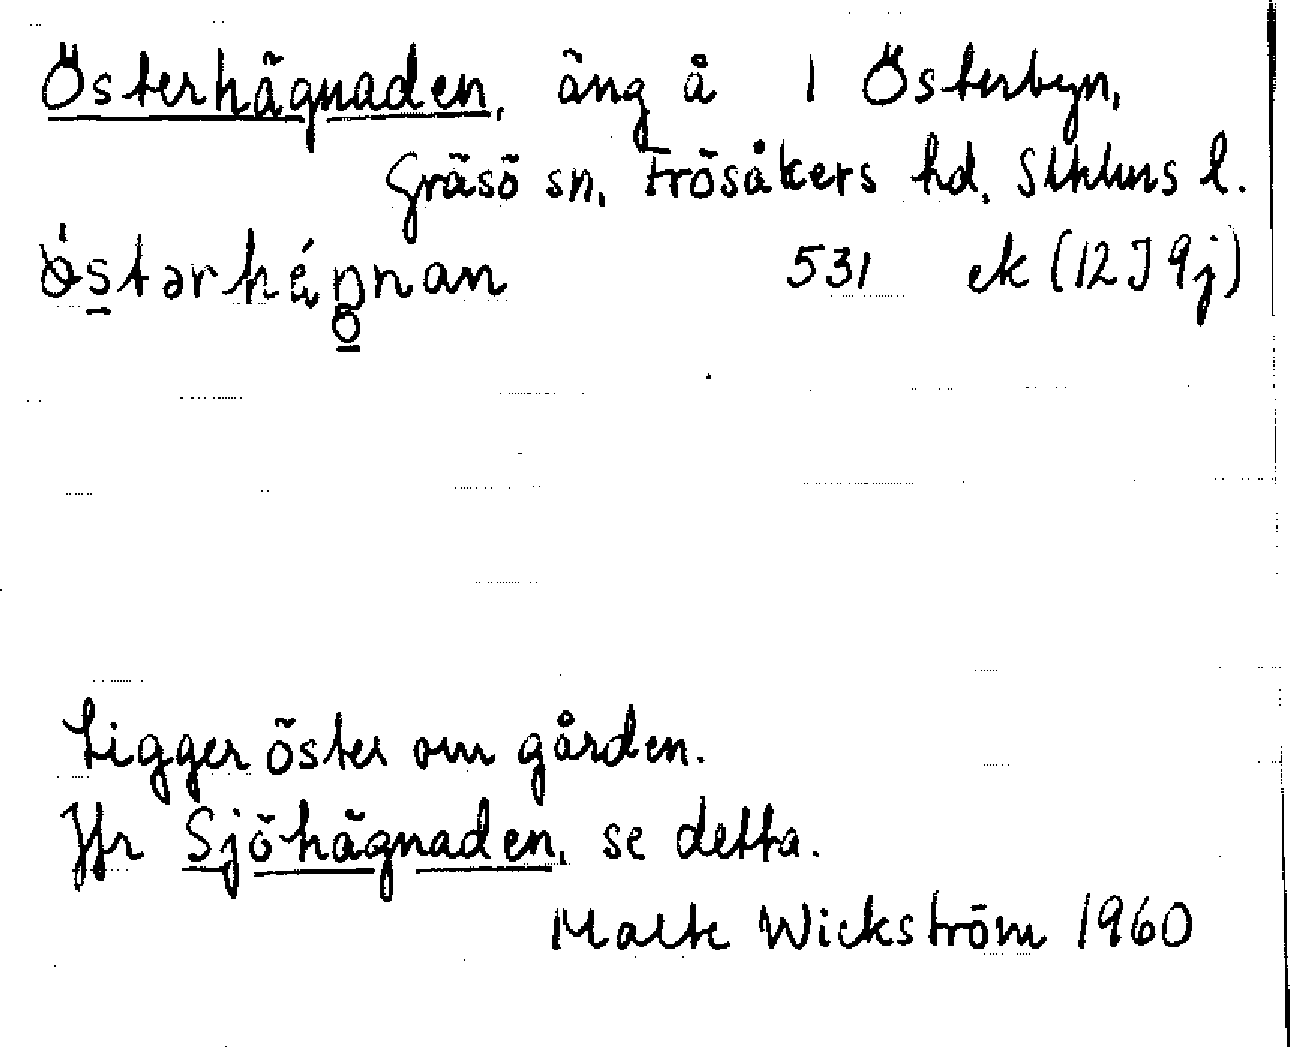 Österhägnaden, äng å 1 Österbyn,
Gräsö sn, Frösåkers hd, Sthlms l.
531 ek (12I9j)
Ligger öster om gården.
Jfr Sjöhägnaden, se detta.
Malte Wickström 1960